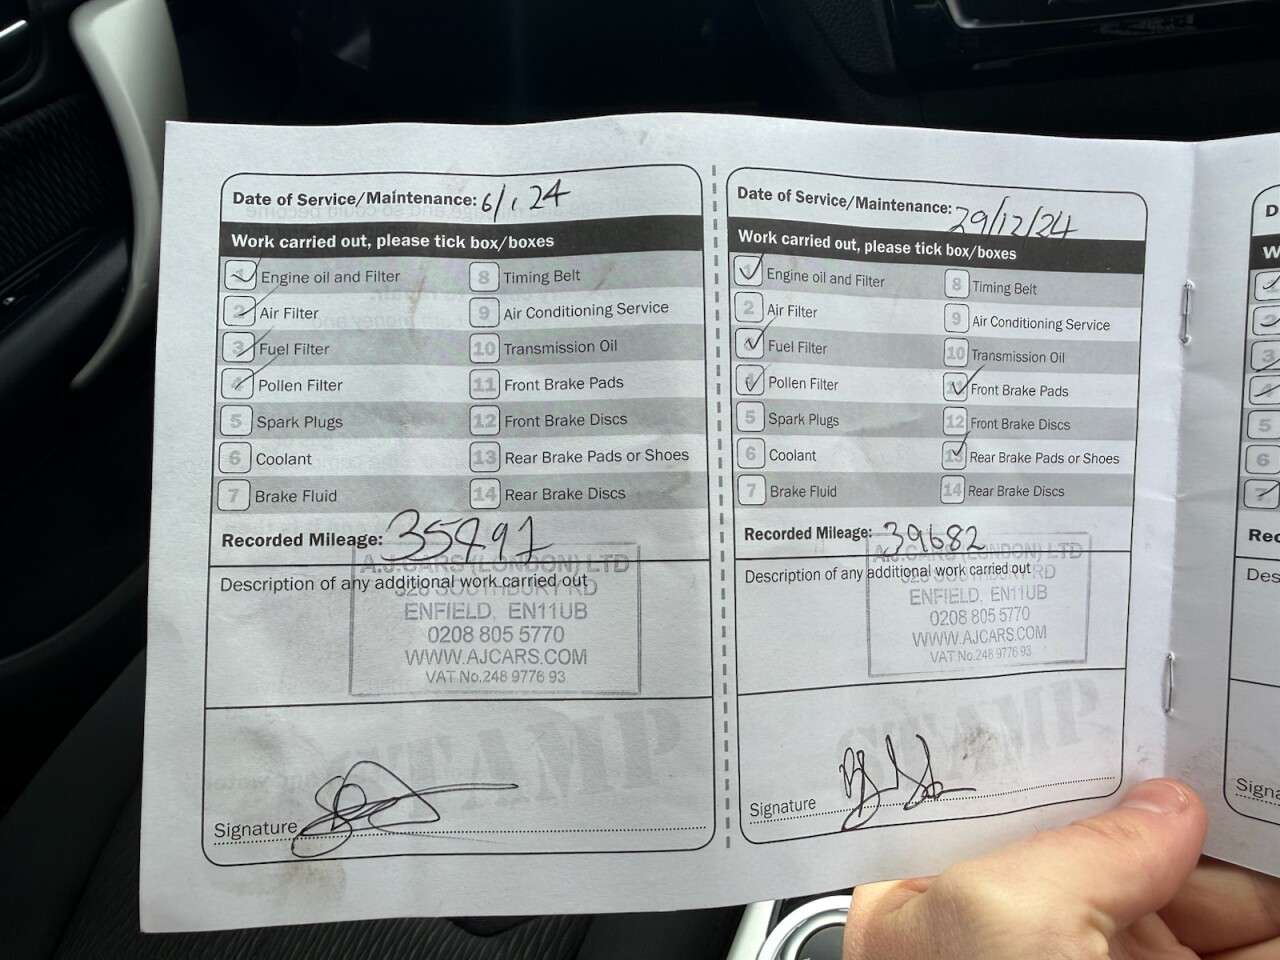 Date of Service/Maintenance: 6/1.24
Work carried out, please tick box/boxes
1 Engine oil and Filter
2 Air Filter
3 Fuel Filter
4 Pollen Filter
5 Spark Plugs
6 Coolant
7 Brake Fluid
8 Timing Belt
9 Air Conditioning Service
10 Transmission Oil
11 Front Brake Pads
12 Front Brake Discs
13 Rear Brake Pads or Shoes
14 Rear Brake Discs
Recorded Mileage: 35491
Description of any additional work carried out
A.J.CARS (LONDON) LTD
326 SOUTHBURY RD
ENFIELD, EN11UB
0208 805 5770
WWW.AJCARS.COM
VAT No.248 9776 93
STAMP
Signature
Date of Service/Maintenance: 29/12/24
Work carried out, please tick box/boxes
1 Engine oil and Filter
2 Air Filter
Fuel Filter
4 Pollen Filter
5 Spark Plugs
6 Coolant
7 Brake Fluid
8 Timing Belt
9 Air Conditioning Service
10 Transmission Oil
11 Front Brake Pads
12 Front Brake Discs
13 Rear Brake Pads or Shoes
14 Rear Brake Discs
Recorded Mileage: 39682
Description of any additional work carried out
A.J.CARS (LONDON) LTD
326 SOUTHBURY RD
ENFIELD, EN11UB
0208 805 5770
WWW.AJCARS.COM
VAT No.248 9776 93
STAMP
Signature
D
W
1
2
3
4
5
6
7
Rec
Des
Signa